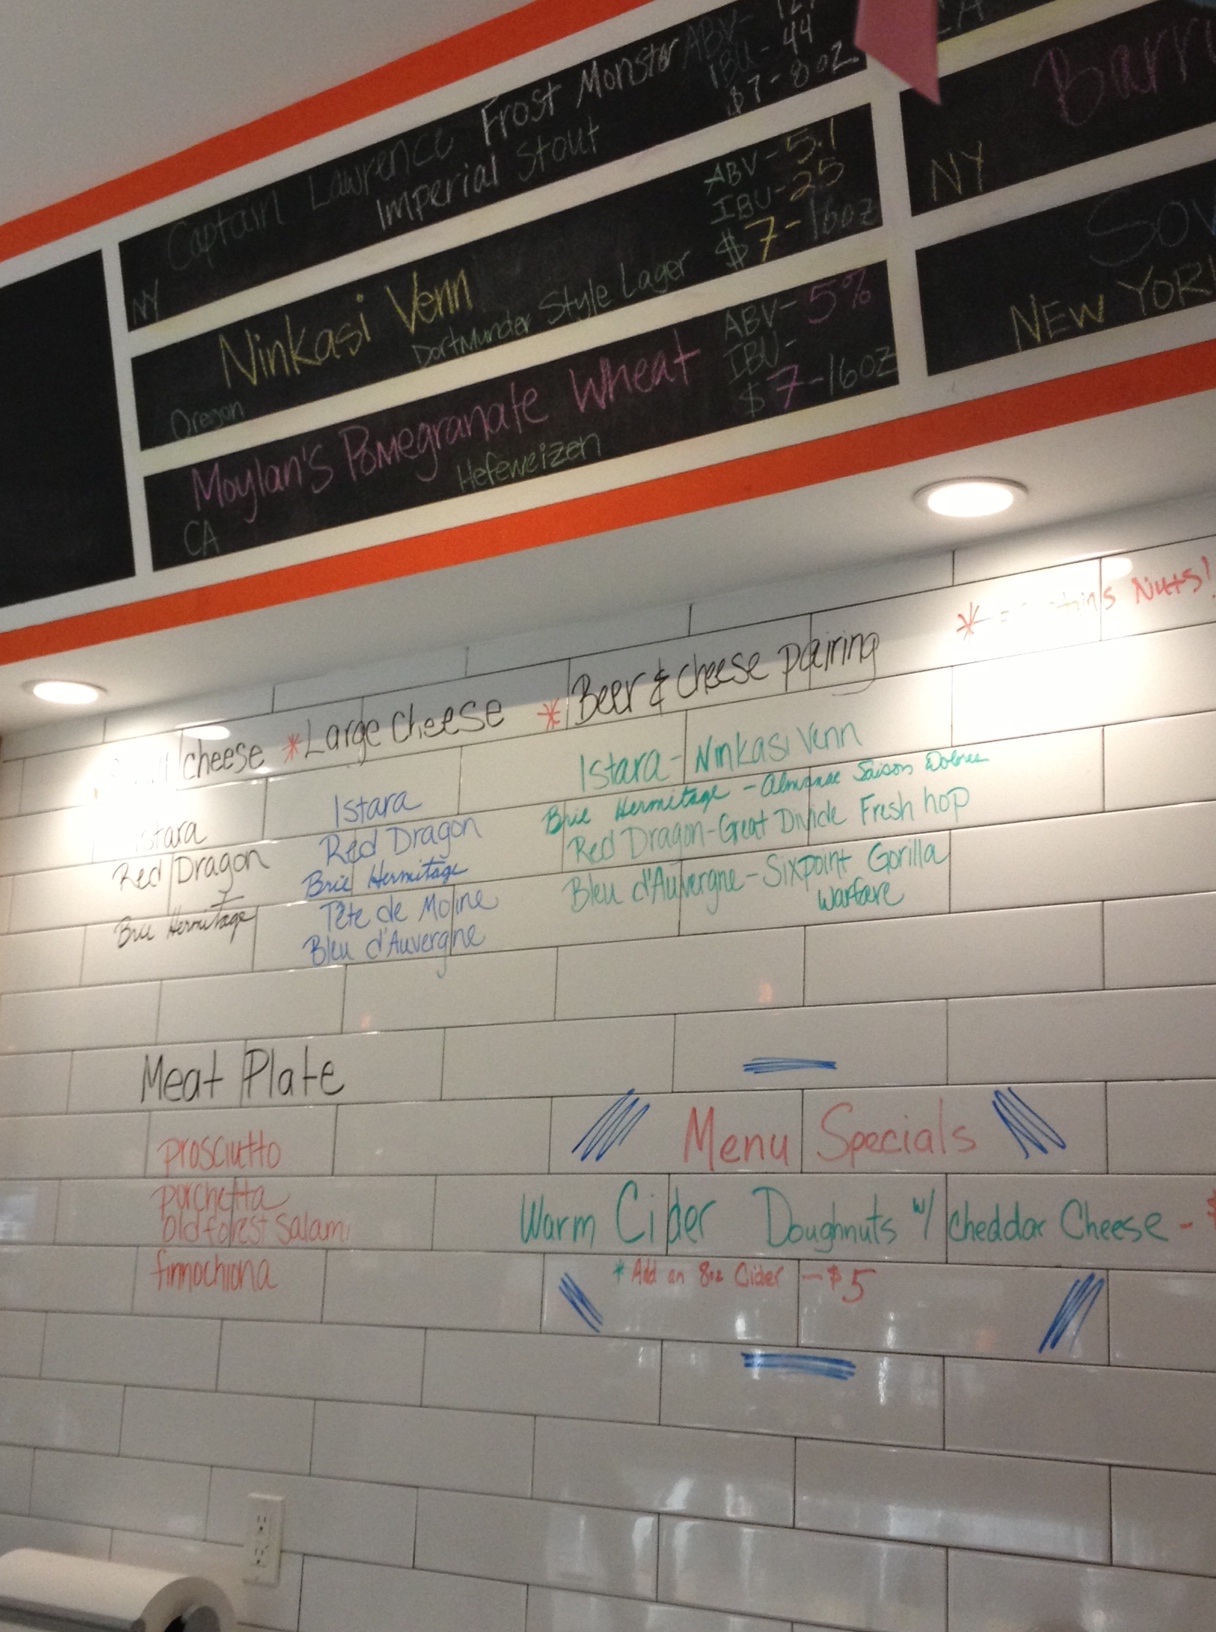 Captain Lawrence Frost Monster ABV-
Imperial Stout IBU-44
NY $7-8oz.
Ninkasi Venn ABV-5.1
Dortmunder Style Lager IBU-25
Oregon $7-16oz
Moylan's Pomegranate Wheat ABV-5%
Hefeweizen IBU-
CA $7-16oz
NY
NEW YORK
* = Nuts!
cheese
Istara
Red Dragon
Brie Hermitage
*Large Cheese
Istara
Red Dragon
Brie Hermitage
Tête de Moine
Bleu d'Auvergne
* Beer & cheese pairing
Istara-Ninkasi Venn
Brie Hermitage - Saison Dolores
Red Dragon-Great Divide Fresh hop
Bleu d'Auvergne-Sixpoint Gorilla
Warfare
Meat Plate
prosciutto
purchetta
old forest salami
finnochiona
Menu Specials
Warm Cider Doughnuts w/ cheddar Cheese - $
* Add an 8oz Cider -$5